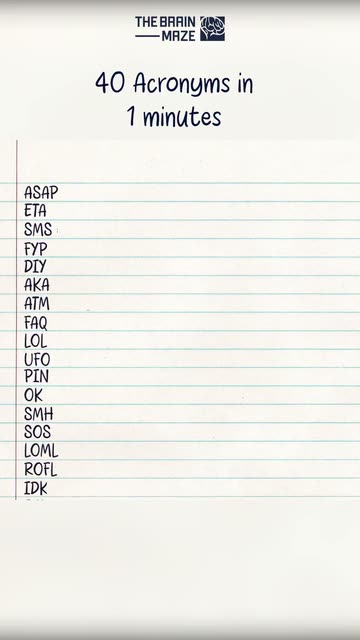 THE BRAIN
MAZE
40 Acronyms in
1 minutes
ASAP
ETA
SMS :
FYP
DIY
AKA
ATM
FAQ
LOL
UFO
PIN
OK
SMH
SOS
LOML
ROFL
IDK